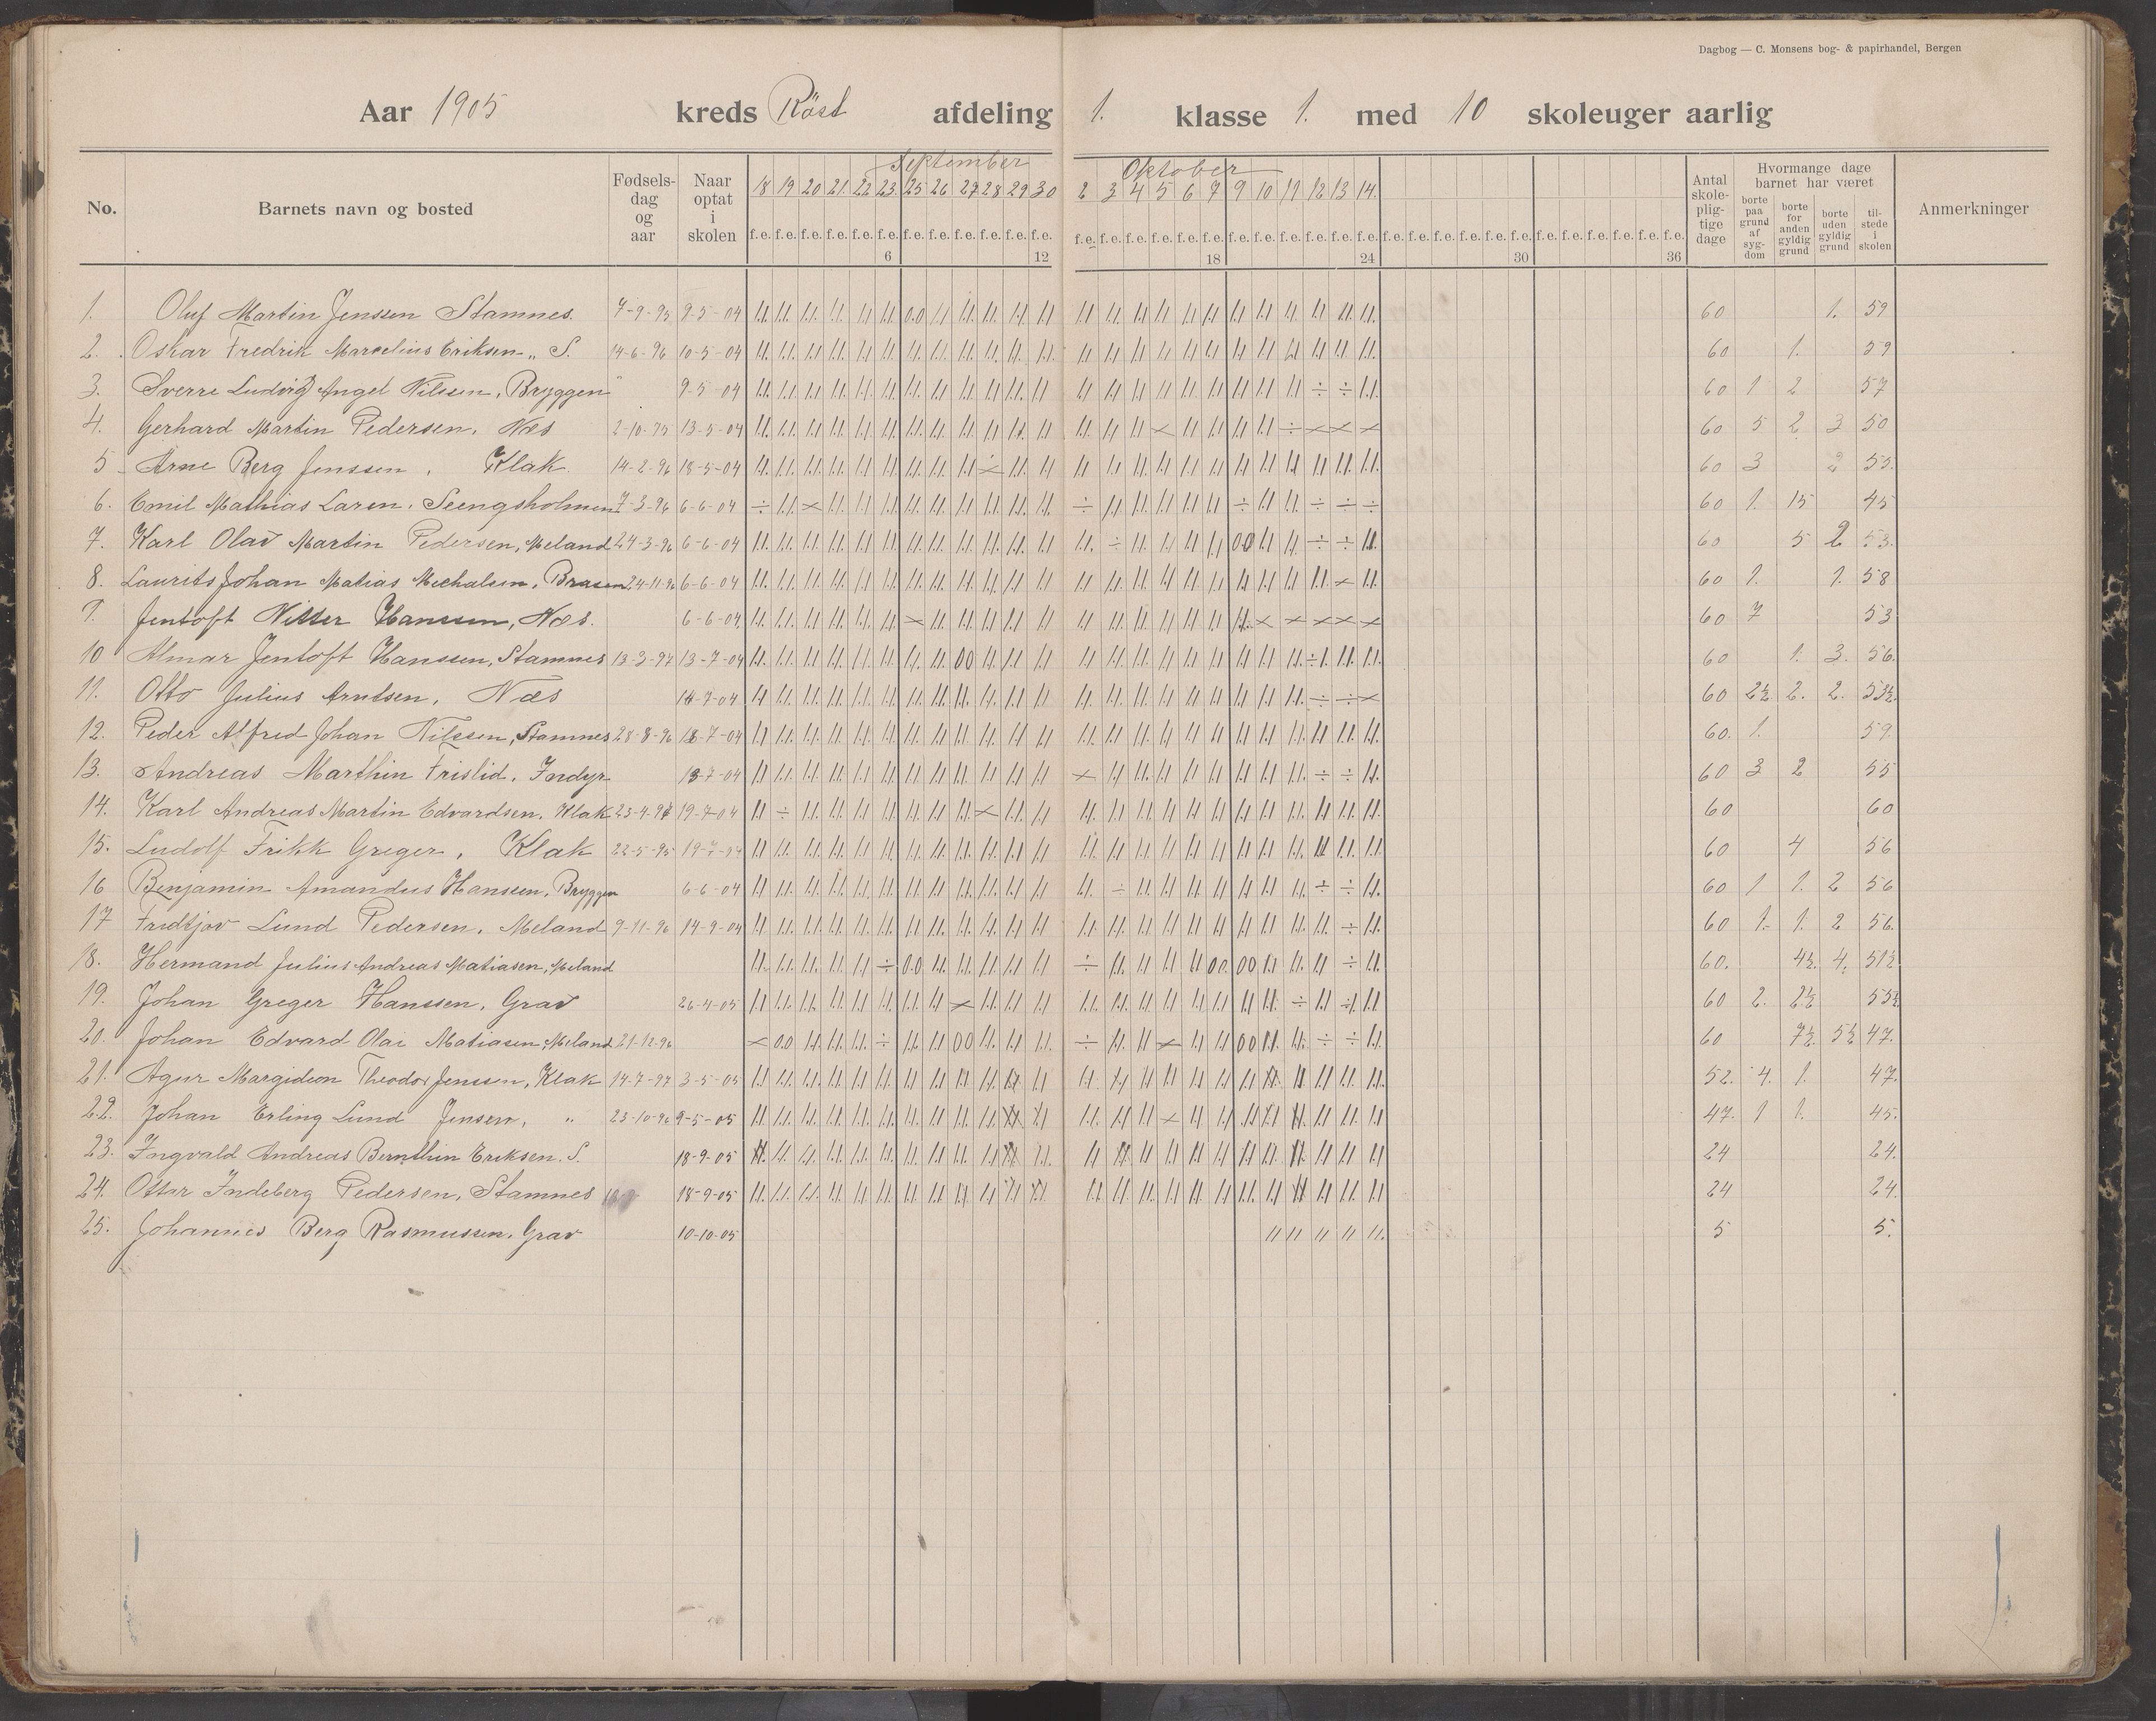 Dagbog — C. Monsens bog- & papirhandel, Bergen
Aar 1905 kreds Röst afdeling 1. klasse 1. med 10 skoleuger aarlig
No. Barnets navn og bosted Fødselsdag og aar Naar optat i skolen September Oktober Antal skolepligtige dage Hvormange dage barnet har været Anmerkninger
18 19 20 21 22 23 25 26 27 28 29 30 2 3 4 5 6 7 9 10 11 12 13 14
borte paa grund af sygdom borte for anden gyldig grund borte uden gyldig grund tilstede i skolen
f.e. f.e. f.e. f.e. f.e. f.e. f.e. f.e. f.e. f.e. f.e. f.e. f.e. f.e. f.e. f.e. f.e. f.e. f.e. f.e. f.e. f.e. f.e. f.e. f.e. f.e. f.e. f.e. f.e. f.e. f.e. f.e. f.e. f.e. f.e. f.e.
6 12 18 24 30 36
1. Oluf Martin Jenssen Stamnes. 7-9-95 9-5-04 60 1. 59
2. Oskar Fredrik Marcelius Eriksen „ S. 14-6-96 10-5-04 60 1. 59
3. Sverre Ludvig Angel Nilssen, Bryggen 9-5-04 60 1 2 57
4. Gerhard Martin Pedersen, Næs 2-10-95 13-5-04 60 5 2 3 50
5 Arne Berg Jenssen, Klak. 14-2-96 18-5-04 60 3 2 55.
6. Emil Mathias Laren, 7-3-96 6-6-04 60 1. 15 45
7. Karl Olav Martin Pedersen, Meland 24-3-96 6-6-04 60 5 2 53.
8. Laurits Johan Matias Michalsen, Brasen 24-11-96 6-6-04 60 1. 1. 58
9. Jentoft Nitter Hanssen, Næs. 6-6-04 60 7 53
10 Almar Jentoft Hanssen, Stamnes 13-3-97 13-7-04 60 1. 3. 56.
11. Otto Julius Arntsen, Næs 14-7-04 60 2½ 2. 2. 53½.
12. Peder Alfred Johan Nilssen, Stamnes 28-8-96 18-7-04 60. 1. 59.
13. Andreas Marthin Fristid, Indyr 18-7-04 60 3 2 55
14. Karl Andreas Martin Edvardsen, Klak 19-7-04 60 60
15. Ludolf Frikk Greger, Klak 22-5-95 19-7-04 60 4 56
16 Benjamin Amandus Hanssen, Bryggen 6-6-04 60 1 1. 2 56
17 Fredtjov Lund Pedersen, Meland 9-11-96 14-9-04 60 1. 1. 2 56.
18. Hermand Julius Andreas Matiasen, Meland 60. 4½. 4. 51½
19. Johan Greger Hanssen, Grav 26-4-05 60 2. 2½ 55½
20. Johan Edvard Olai Matiasen, Meland 21-12-96 60 7½ 5½ 47.
21. Agur Margideon Theodor Jenssen, Klak 14-7-97 3-5-05 52. 4. 1. 47.
22. Johan Erling Lund Jensen, „ 23-10-96 9-5-05 47. 1 1. 45.
23. Ingvald Andreas Bernthin Eriksen. S. 18-9-05 24 24.
24. Ottar Indeberg Pedersen, Stamnes 18-9-05 24 24.
25. Johannes Berg Rasmussen, Grav 10-10-05 5 5.